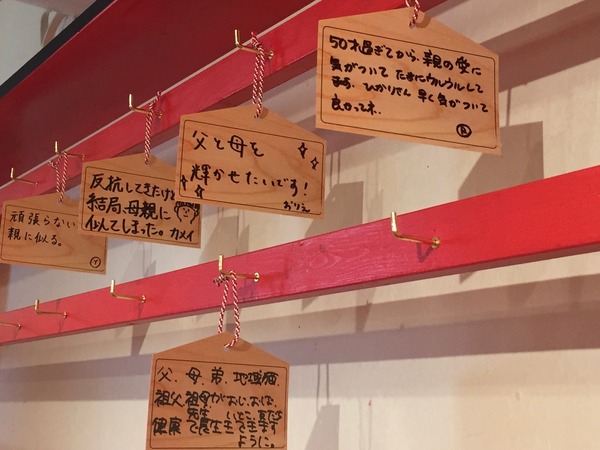 50才過ぎてから、親の愛に
気がついて たまにウルウルして
ます。ひかりさん 早く気がついて
良かってネ..
父と母を
輝かせたいです!
おりえ
反抗してきたけど
結局、母親に
似てしまった。カメイ
頑張らない
親に似る。
Y
父、母、弟、地域猫、
祖父、祖母が、おじ、おば、
先生 いとこ、友だち
健康で長生きできます
ように。